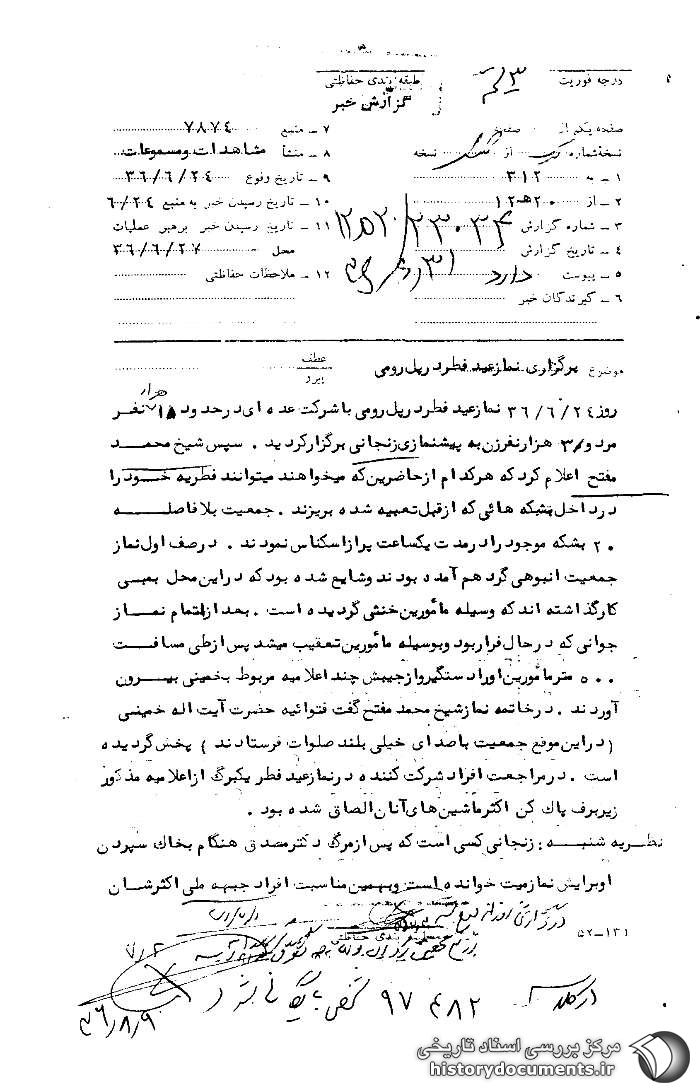 درجه فوریت
طبقه بندی حفاظتی
گزارش خبر
صفحه یکم از صفحه
نسخه شماره از نسخه
۱ ـ به ۳۱۲
۲ ـ از ۲۰ هـ ۱۲
۳ ـ شماره گزارش
۴ ـ تاریخ گزارش
۵ ـ پیوست دارد
۶ ـ گیرندگان خبر
۷ ـ منبع ۷۸۷٤
۸ ـ منشأ مشاهدات ومسموعات
۹ ـ تاریخ وقوع ۳۶/۶/۲٤
۱۰ ـ تاریخ رسیدن خبر به منبع ۶/۲٤
۱۱ ـ تاریخ رسیدن خبر برهبر عملیات
محل ۳۶/۶/۲۷
۱۲ ـ ملاحظات حفاظتی
موضوع برگزاری نمازعید فطردرپل رومی
عطف
پیرو
هزار
روز ۳۶/۶/۲٤ نمازعید فطردرپل رومی باشرکت عده ای درحدود ۱۵ نفر
مرد و ۳ هزارنفرزن به پیشنمازی زنجانی برگزارگردید . سپس شیخ محمد
مفتح اعلام کرد که هرکدام ازحاضرین که میخواهند میتوانند فطریه خود را
درداخل بشکه هائی که ازقبل تعبیه شده بریزند . جمعیت بلافاصلـــه
۲۰ بشکه موجود رادرمدت یکساعت پرازاسکناس نمودند . درصف اول نماز
جمعیت انبوهی گردهم آمده بودند وشایع شده بود که دراین محل بمبی
کارگذاشته اند که وسیله مأمورین خنثی گردیده است . بعد ازاتمام نمـــاز
جوانی که درحال فراربود وبوسیله مأمورین تعقیب میشد پس ازطی مسافـــت
۵۰۰ مترمأمورین اورادستگیروازجیبش چند اعلامیه مربوط بخمینی بیـــرون
آوردند . درخاتمه نمازشیخ محمد مفتح گفت فتوائیه حضرت آیت اله خمینـی
( دراین موقع جمعیت باصدای خیلی بلند صلوات فرستادند ) پخش گردیده
است . درمراجعت افراد شرکت کننده درنمازعید فطر یکبرگ ازاعلامیه مذکور
زیربرف پاک کن اکثرماشین های آنان الصاق شده بود .
نظریه شنبـــه : زنجانی کسی است که پس ازمرگ دکترمصدق هنگام بخاک سپردن
اوبرایش نمازمیت خوانده است وبهمین مناسبت افراد جبهه ملی اکثرشـان
طبقه بندی حفاظتی
۵۲-۱۳۱
۹۷۴۸۲
۳۶/۸/۹
مرکز بررسی اسناد تاریخی
historydocuments.ir